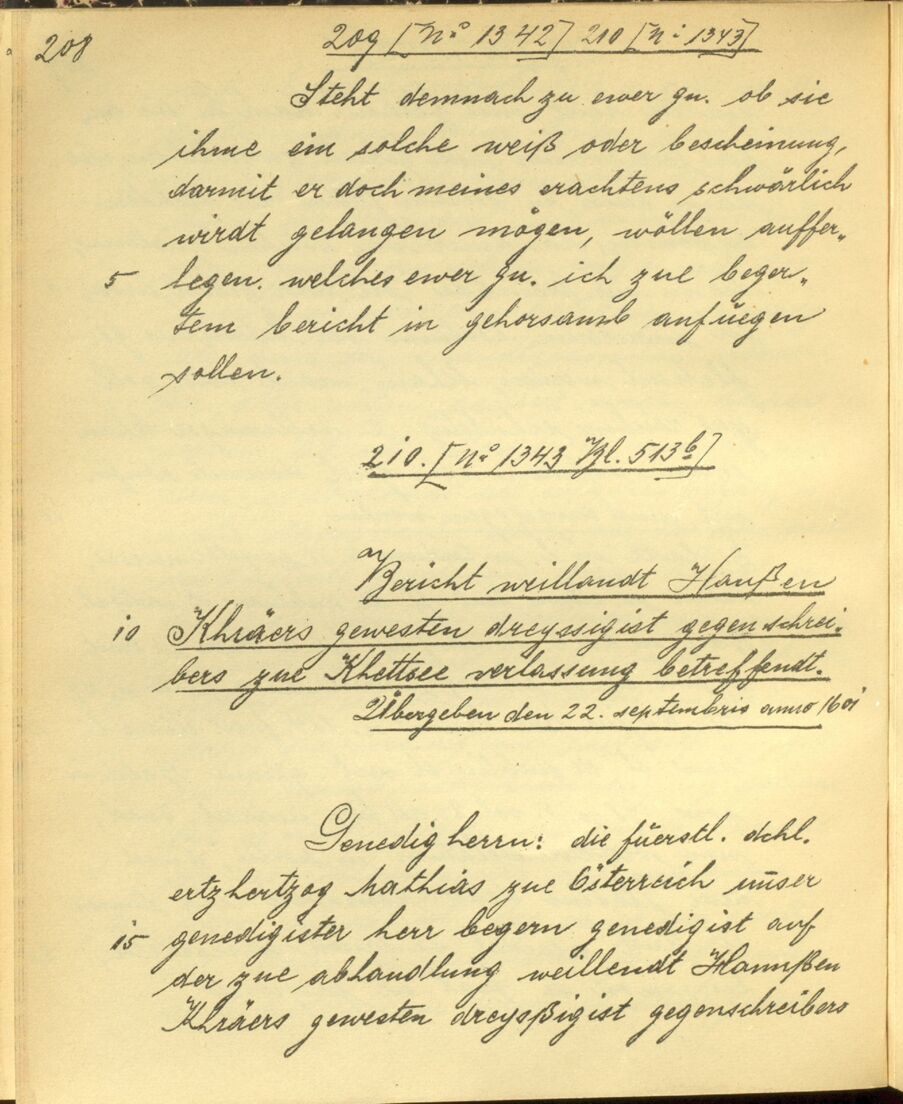 208
209 [No 1342] 210 [No 1343]
Steht demnach zu ewer gn. ob sie
ihme ein solche weiß oder bescheinung,
darmit er doch meines erachtens schwärlich
wirdt gelangen mögen, wöllen auffer„
5 legen. welches ewer gn. ich zue beger„
tem bericht in gehorsamb anfüegen
sollen.
210. [No 1343 Bl. 513b]
Bericht weillandt Hanßen
10 Khräers gewesten dreyssigist gegenschrei„
bers zue Khettsee verlassung betreffendt.
Übergeben den 22. septembris anno 1601
Genedig herrn: die füerstl. dchl.
ertzhertzog Mathias zue Österreich unser
15 genedigister herr begern genedigist auf
der zue abhandlung weillendt Hannßen
Khräers gewesten dreysßigist gegenschreibers